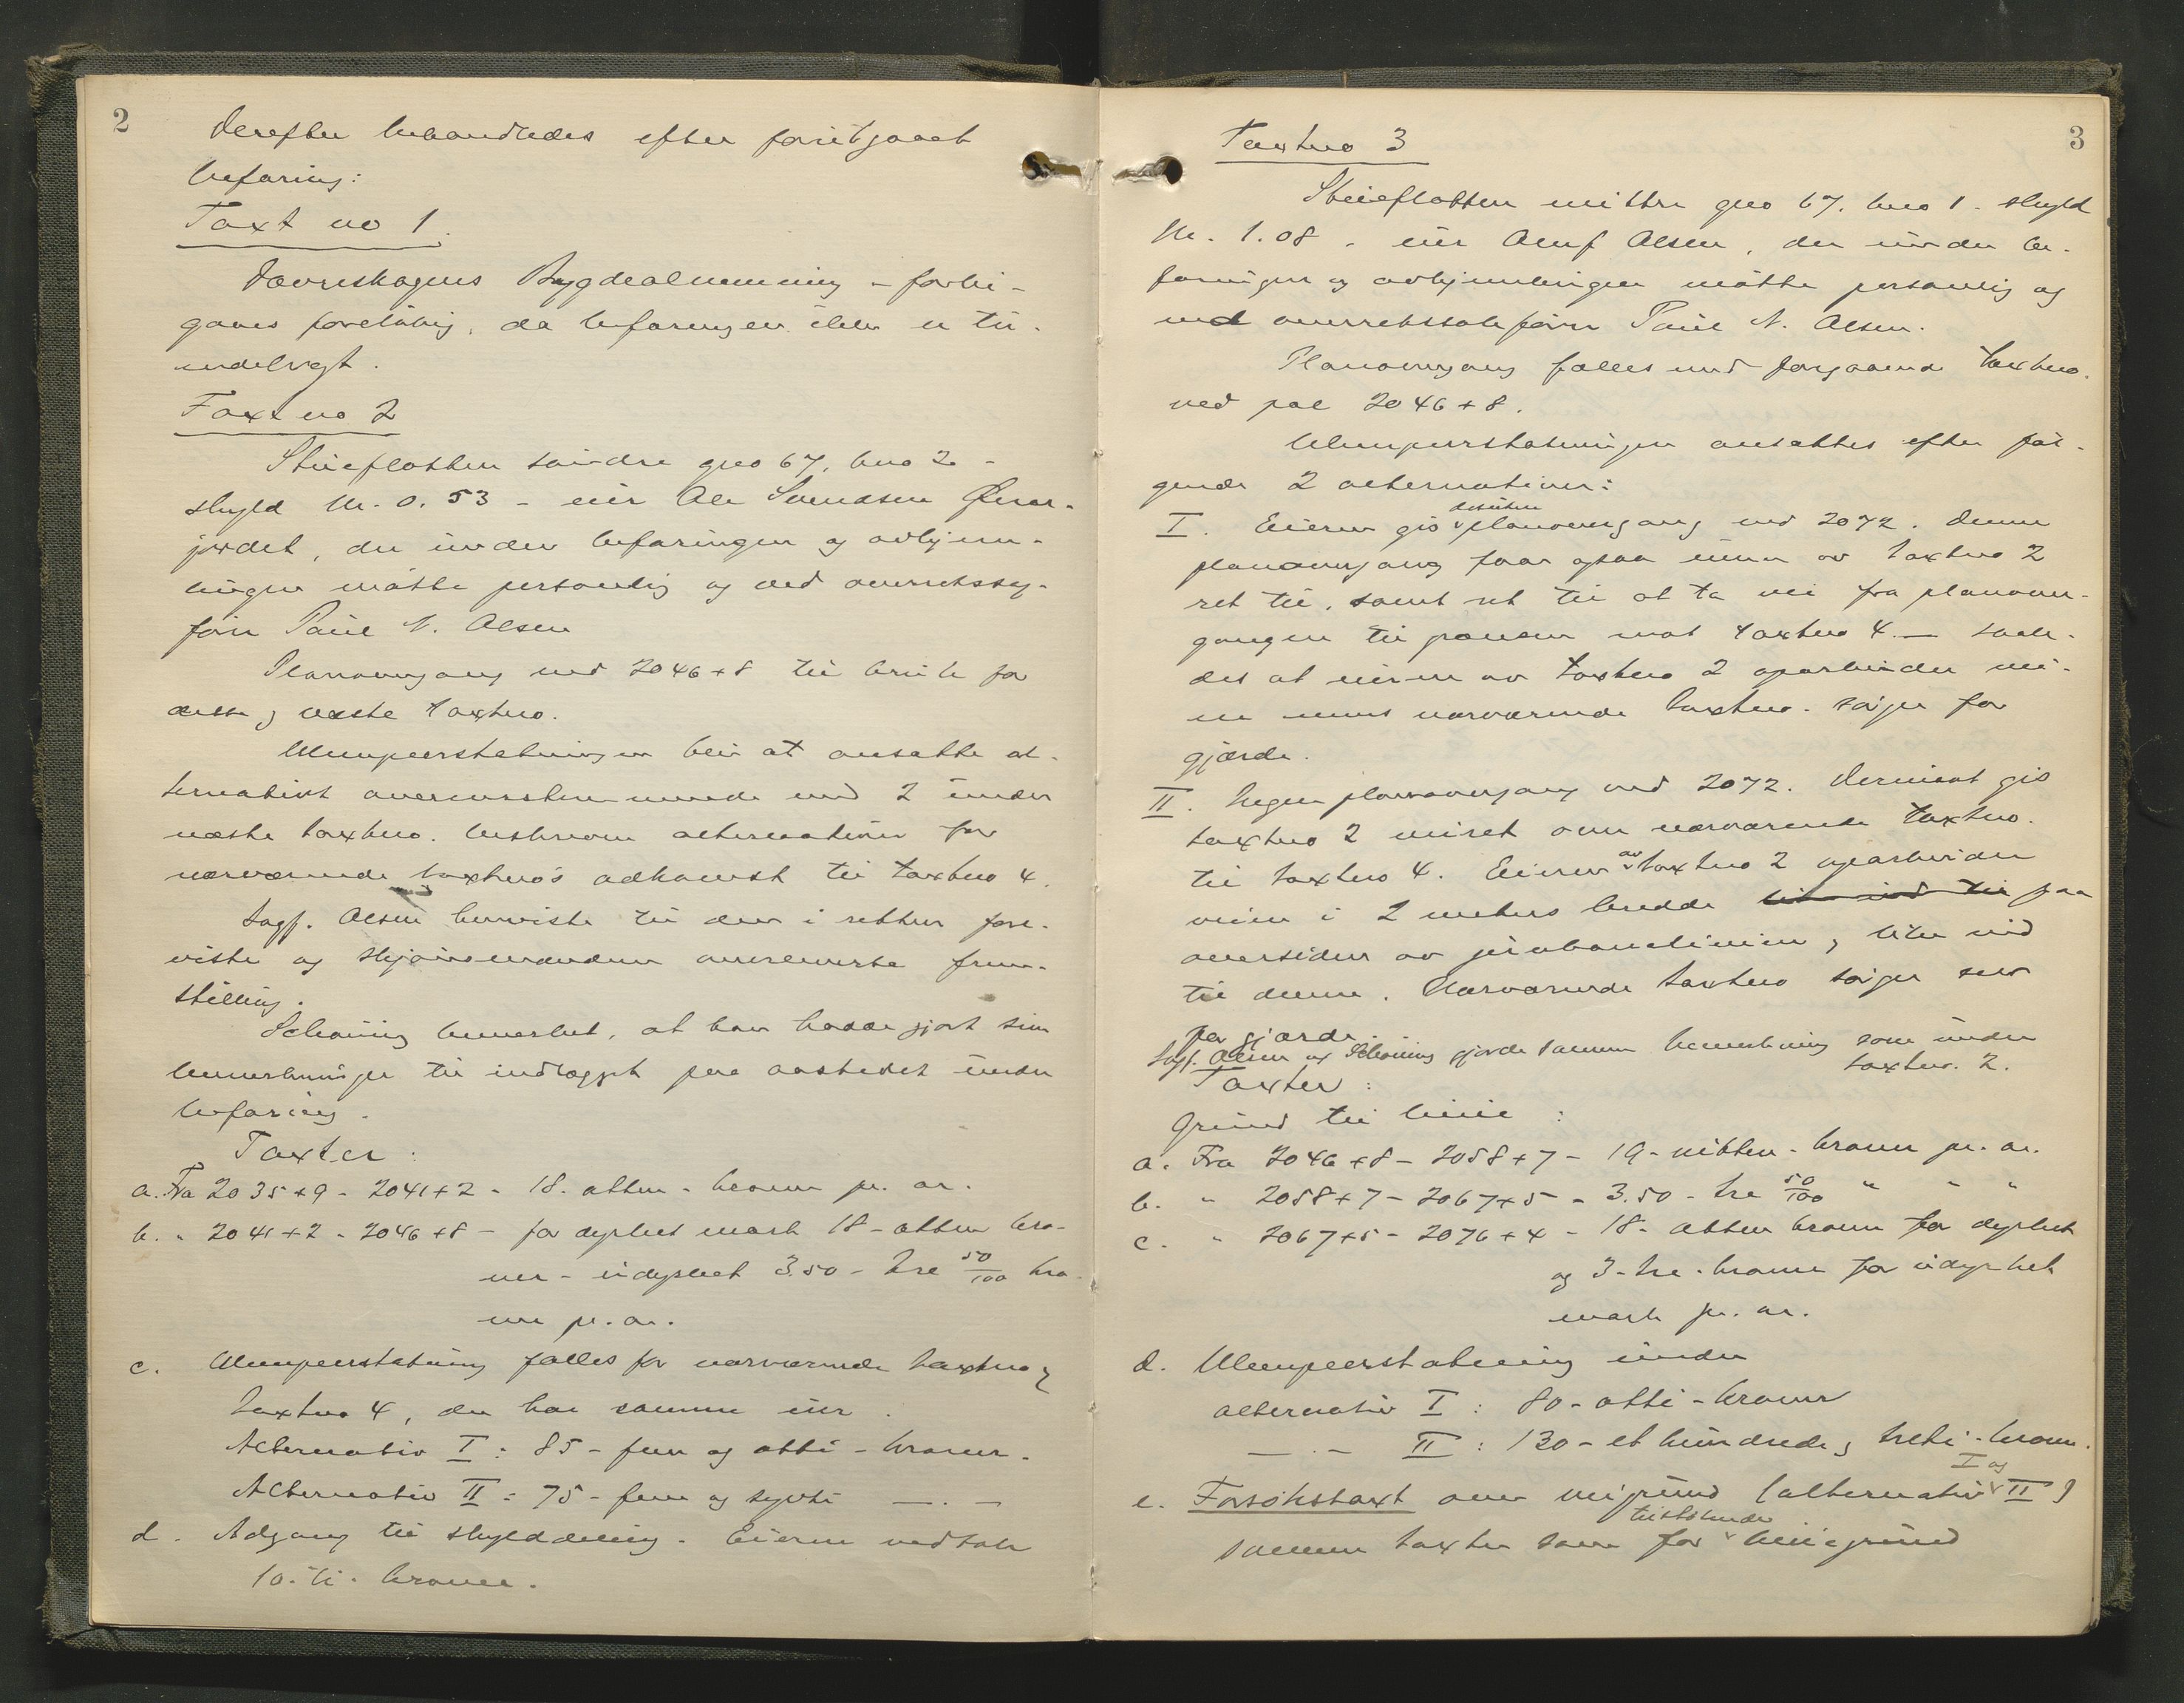 2
Derefter behandledes efter foretgaaet
befaring:
Taxt no 1.
Dovreskogens Bygdealmenning - forbi-
gaaes foreløbig, da befaringen ikke er til-
endebragt.
Taxt no 2
Stueflotten søndre gno 67, bno 2 -
skyld M. 0.53 - eier Ole Svendsen
jordet, der under befaringen og avhjem-
lingen møtte personlig og ved overretssag-
fører Paul N. Olsen
Planovergang ved 2046+8 til bruk for
dette og næste taxtno.
Ulempeerstatningen blir at ansætte al-
ternativt overensstemmende med 2 under
næste taxtno. bestemte alternativer for
nærværende taxtno's adkomst til taxtno 4.
Sagf. Olsen henviste til den i retten frem-
viste og skjønsmændene overleverte frem-
stilling.
Schøning bemerket, at han hadde gjort sine
bemerkninger til indlægget paa aastedet under
befaring.
Taxter:
a. Fra 2035+9 - 2041+2 - 18. atten - kroner pr. ar.
b. " 2041+2 - 2046+8 - for dyrket mark 18 - atten kro-
ner - udyrket 3.50 - tre 50/100 kro-
ner pr. ar.
c. Ulempeerstatning fælles for nærværende taxtno og
taxtno 4, der har samme eier.
Alternativ I: 85 - fem og otti - kroner.
Alternativ II: 75 - fem og sytti — . —
d. Adgang til skylddeling. Eieren vedtok
10. ti. kroner.
3
Taxtno 3
Stueflotten nittre gno 67. bno 1. skyld
M. 1.08 . eier Oluf Olsen, der under be-
faringen og avhjemlingen møtte personlig og
ved overretssakfører Paul N. Olsen.
Planovergang fælles med foregaaende taxtno.
ved pæl 2046+8.
Ulempeerstatningen ansættes efter føl-
gende 2 alternativer:
I. Eieren gis desuten planovergang ved 2072. Denne
planovergang faar ogsaa eieren av taxtno 2
ret til, samt ret til at ta vei fra planover-
gangen til grænsen mot taxtno 4. — saale-
des at eieren av taxtno 2 oparbeider vei-
en mens nærværende taxtno. sørger for
gjærde.
II. Ingen planovergang ved 2072. Derimot gis
taxtno 2 veiret over nærværende taxtno.
til taxtno 4. Eieren av taxtno 2 oparbeider
veien i 2 meters bredde paa
oversiden av jernbanelinien, like ind
til denne. Nærværende taxtno sørger selv
for gjærde.
Sagf. Olsen og Schøning gjorde samme bemerkning som under
taxtno. 2.
Taxter:
Grund til linie:
a. Fra 2046+8 - 2058+7 - 19 - nitten - kroner pr. ar.
b. " 2058+7 - 2067+5 - 3.50 - tre 50/100 " " "
c. " 2067+5 - 2076+4 - 18 - atten kroner for dyrket
og 3 - tre - kroner for udyrket
mark pr. ar.
d. Ulempeerstatning under
alternativ I: 80 - otti - kroner
— . — II: 130 - et hundrede og tretti - kroner.
e. Forsøkstaxt over veigrund (alternativ I og II)
samme taxter som for tilstøtende liniegrund